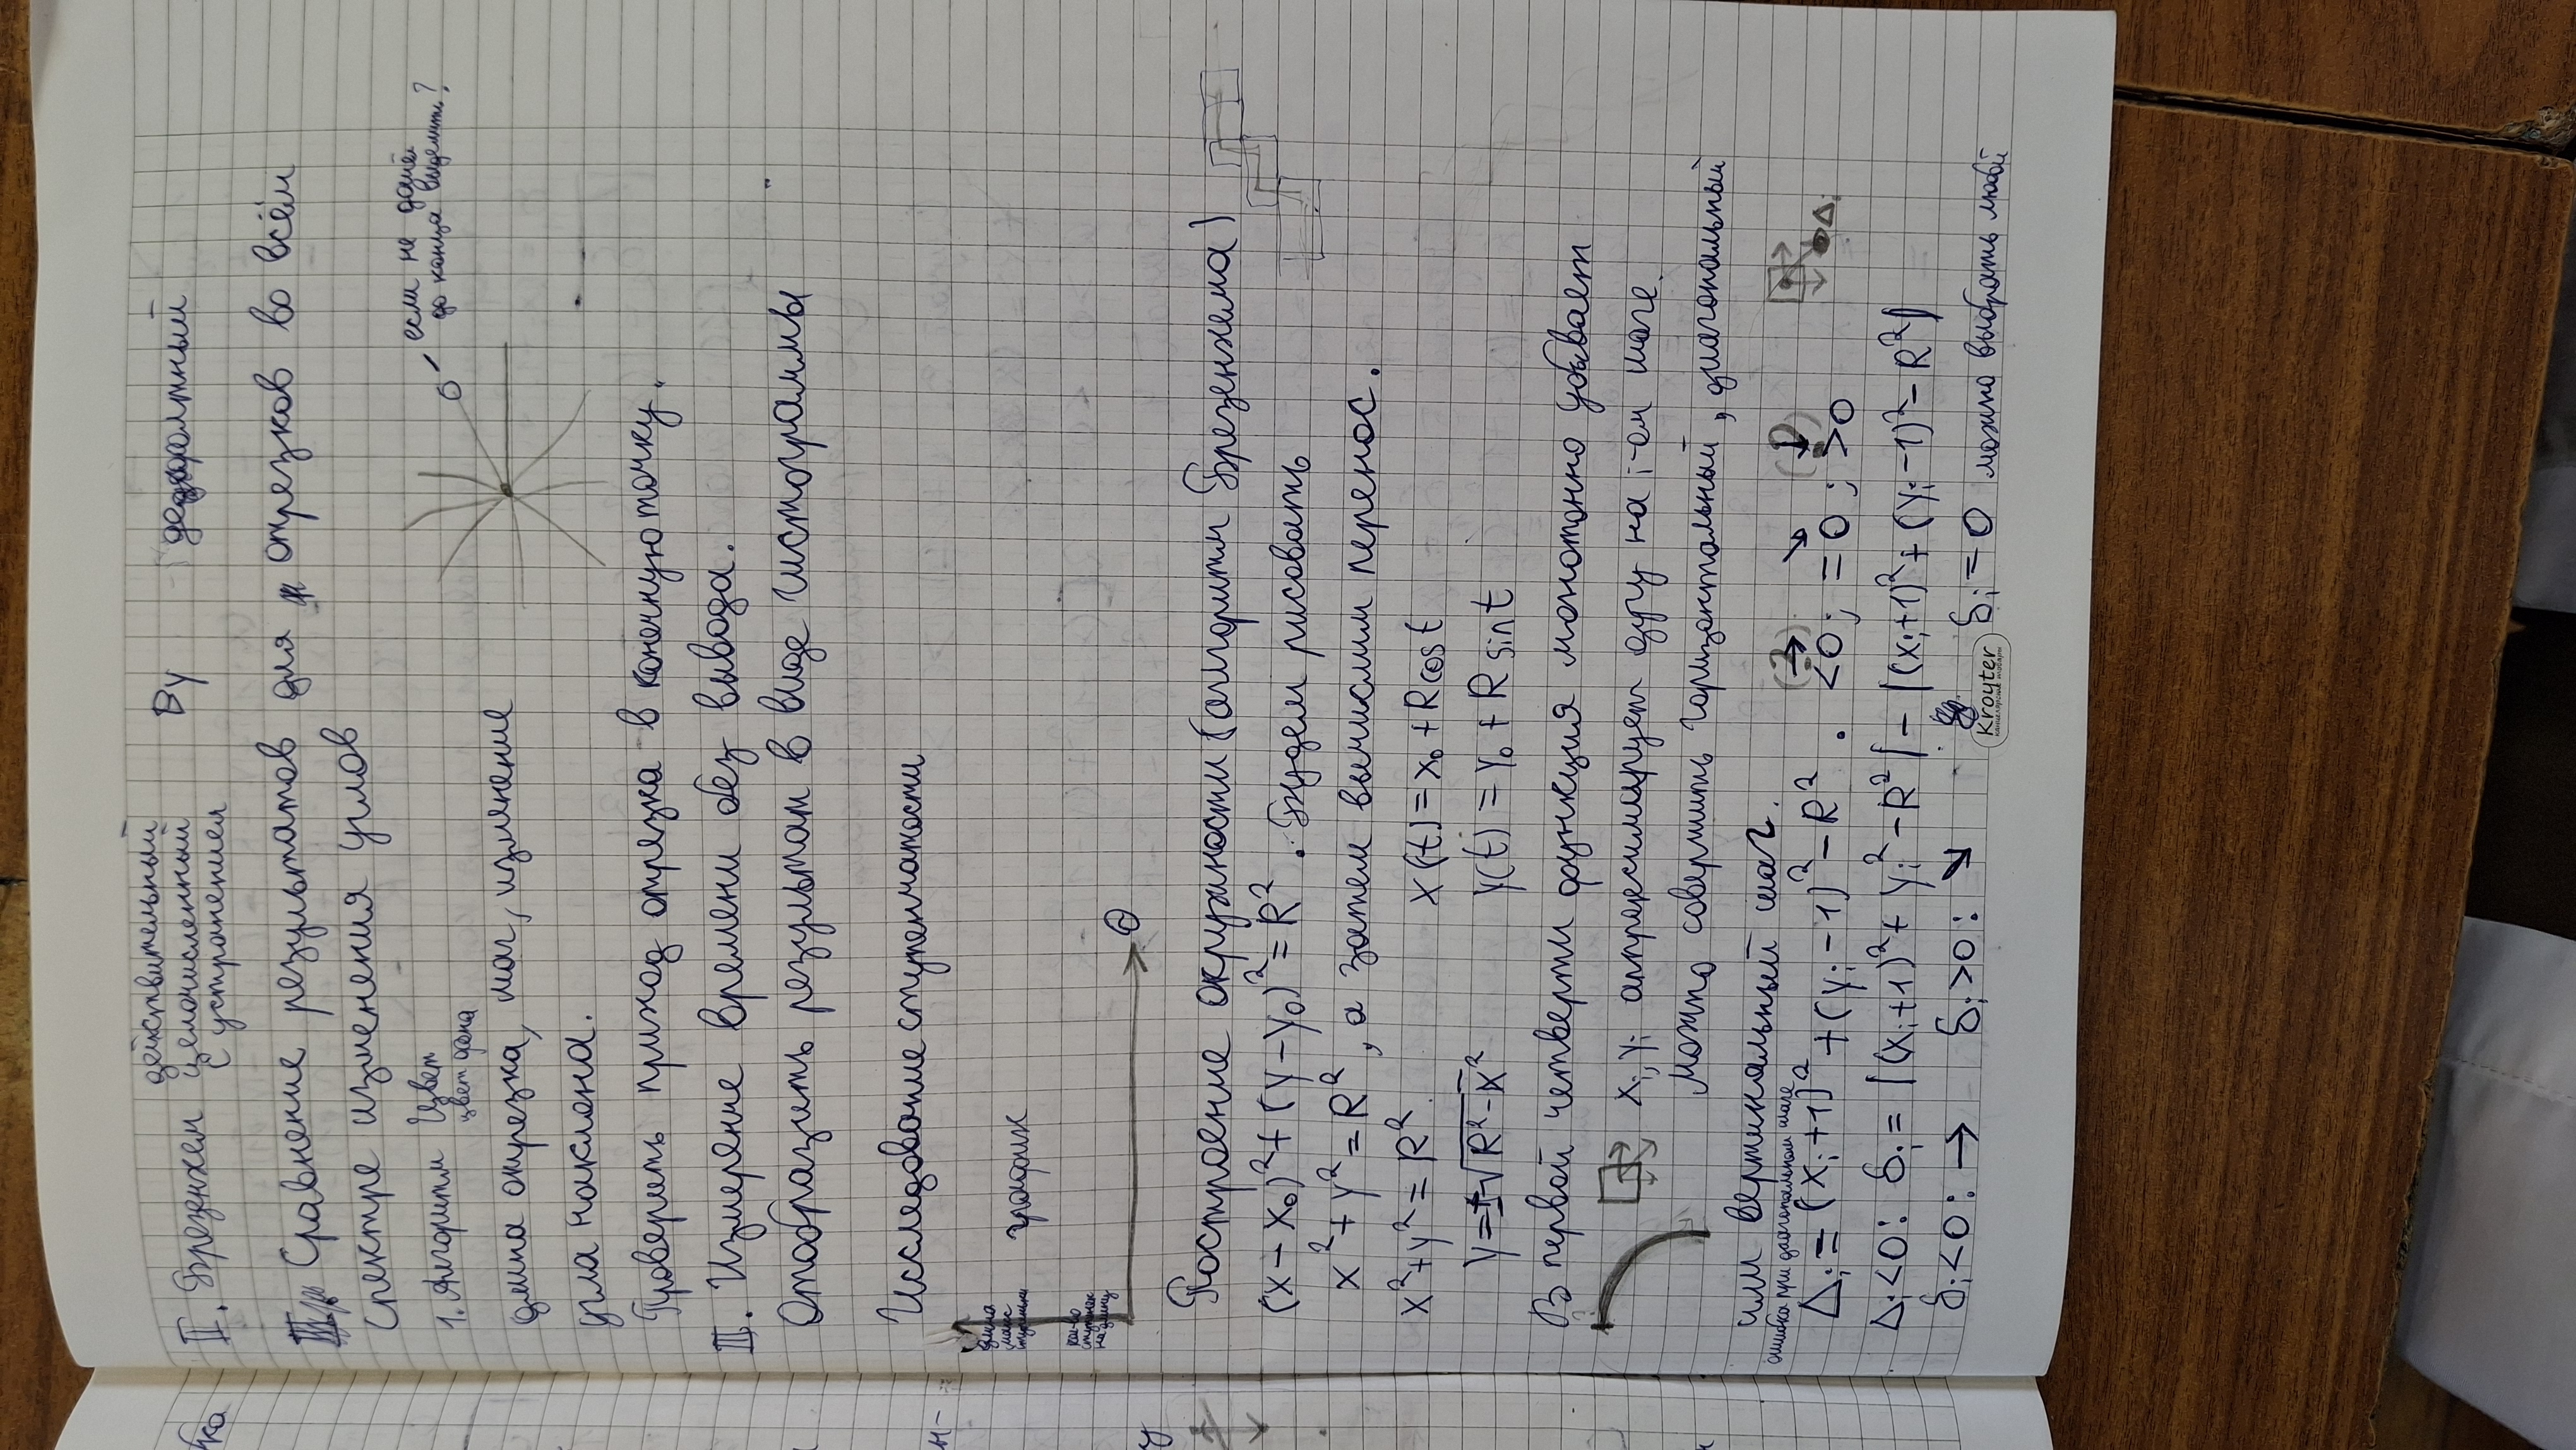 ка
действительный
II. Брезенхем целочисленный Ву дефолтный
с устранением
Сравнение результатов для отрезков во всём
спектре изменения углов
если не дошёл
до конца выделить?
1. Алгоритм Цвет
цвет фона
длина отрезка, шаг, изменение
угла наклона.
Проверить приход отрезка в конечную точку.
III. Измерение времени без вывода.
Отобразить результат в виде гистограммы
Исследование ступенчатости
н-
длина
макс
ступеньки
график
кол-во
ступенек
на длину
Θ
у
Построение окружности (алгоритм Брезенхема)
(x – x₀)² + (y – y₀)² = R². Будем рисовать
x² + y² = R², а затем вычислим перенос.
x² + y² = R² x(t) = x₀ + R cos t
y = ±√R² – x² y(t) = y₀ + R sin t
В первой четверти функция монотонно убывает
xᵢ, yᵢ аппроксимирует дугу на i-ом шаге.
Можно совершить горизонтальный, диагональный
или вертикальный шаг.
ошибка при диагональном шаге
Δᵢ = (xᵢ + 1)² + (yᵢ – 1)² – R². <0; =0; >0
→ ↘ ↓
Δᵢ
Δᵢ<0: δᵢ = |(xᵢ+1)² + yᵢ² – R²| – |(xᵢ+1)² + (yᵢ –1)² – R²|
δᵢ<0: → δᵢ>0: ↘ δᵢ = 0 можно выбрать любой
Kroyter
канцелярские товары